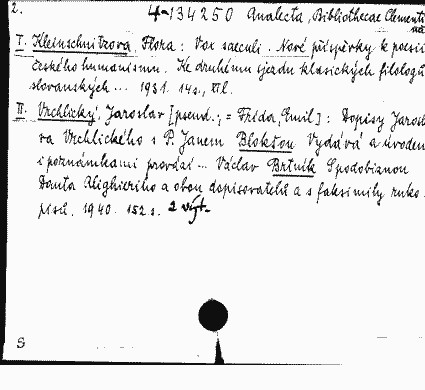 2. 4-134250 Analecta, Bibliothecae Clementi
I. Kleinschnitzova, Flora: Vox saeculi. Nové příspěvky k poesii
českého humanismu. Ke druhému sjezdu klasických filologů
slovanských... 1931. 14 s., tfl.
II. Vrchlický, Jaroslav [pseud.; = Frída, Emil]: Dopisy Jarosl
va Vrchlického s P. Janem Blokšou Vydává a úvodem
i poznámkami provází... Václav Brtník Spodobiznou
Danta Alighieriho a obou dopisovatelů a s faksimily ruko-
pisů. 1940. 152 s. 2 výt.
S